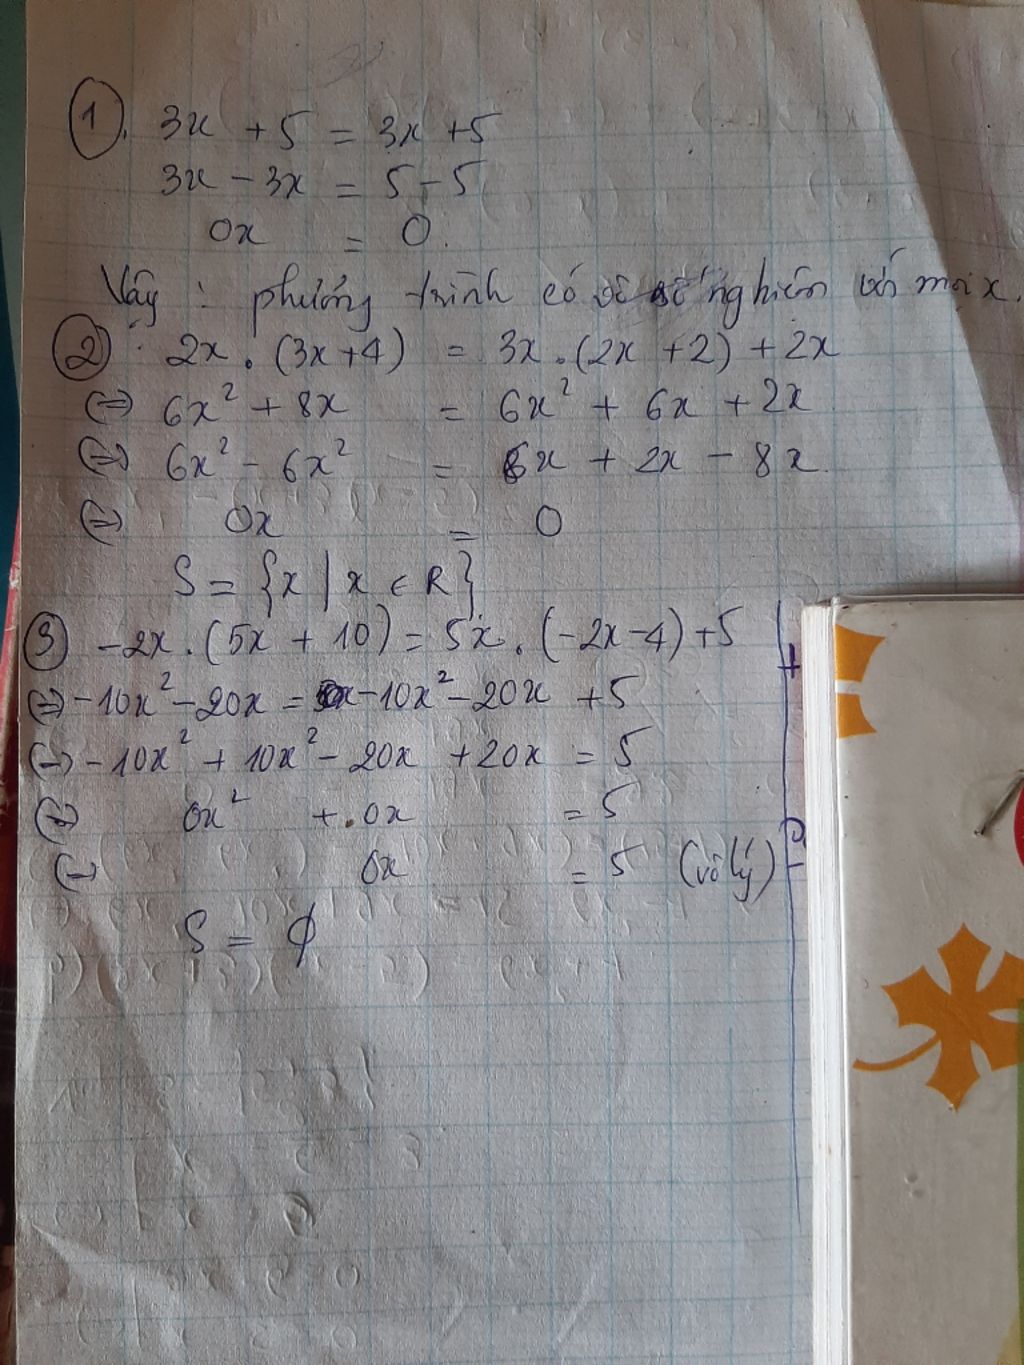 1. 3x + 5 = 3x + 5
3x - 3x = 5 - 5
0x = 0.
Vậy : phương trình có vô số nghiệm với mọi x.
2 : 2x . (3x+4) = 3x . (2x + 2) + 2x
(=) 6x² + 8x = 6x² + 6x + 2x
(=) 6x² - 6x² = 6x + 2x - 8x
(=) 0x = 0
S = {x | x ∈ R}
3 -2x . (5x + 10) = 5x . (-2x-4) + 5
(=) -10x² - 20x = -10x² - 20x + 5
(=) -10x² + 10x² - 20x + 20x = 5
(=) 0x² + 0x = 5
(=) 0x = 5 (vô lý)
S = ∅